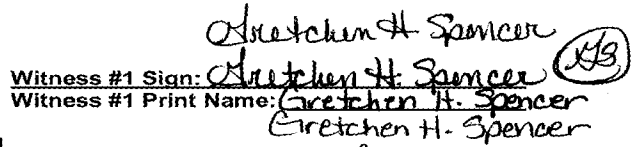 Gretchen H Spencer
Witness #1 Sign: Gretchen H. Spencer GS
Witness #1 Print Name: Gretchen H. Spencer
Gretchen H. Spencer